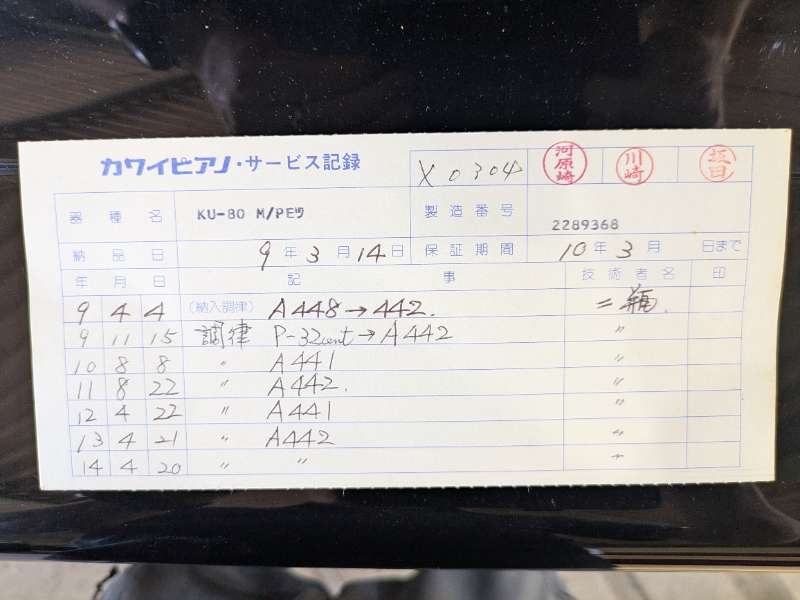 カワイピアノ・サービス記録 X0304 河原崎 川崎 坂田
器種名 KU-80 M/PEツ 製造番号 2289368
納品日 9年3月14日 保証期間 10年3月 日まで
年月日 記事 技術者名 印
9 4 4 (納入調律) A448→442. 二瓶
9 11 15 調律 P-32cent→A442 〃
10 8 8 〃 A441 〃
11 8 22 〃 A442. 〃
12 4 22 〃 A441 〃
13 4 21 〃 A442 〃
14 4 20 〃 〃 〃